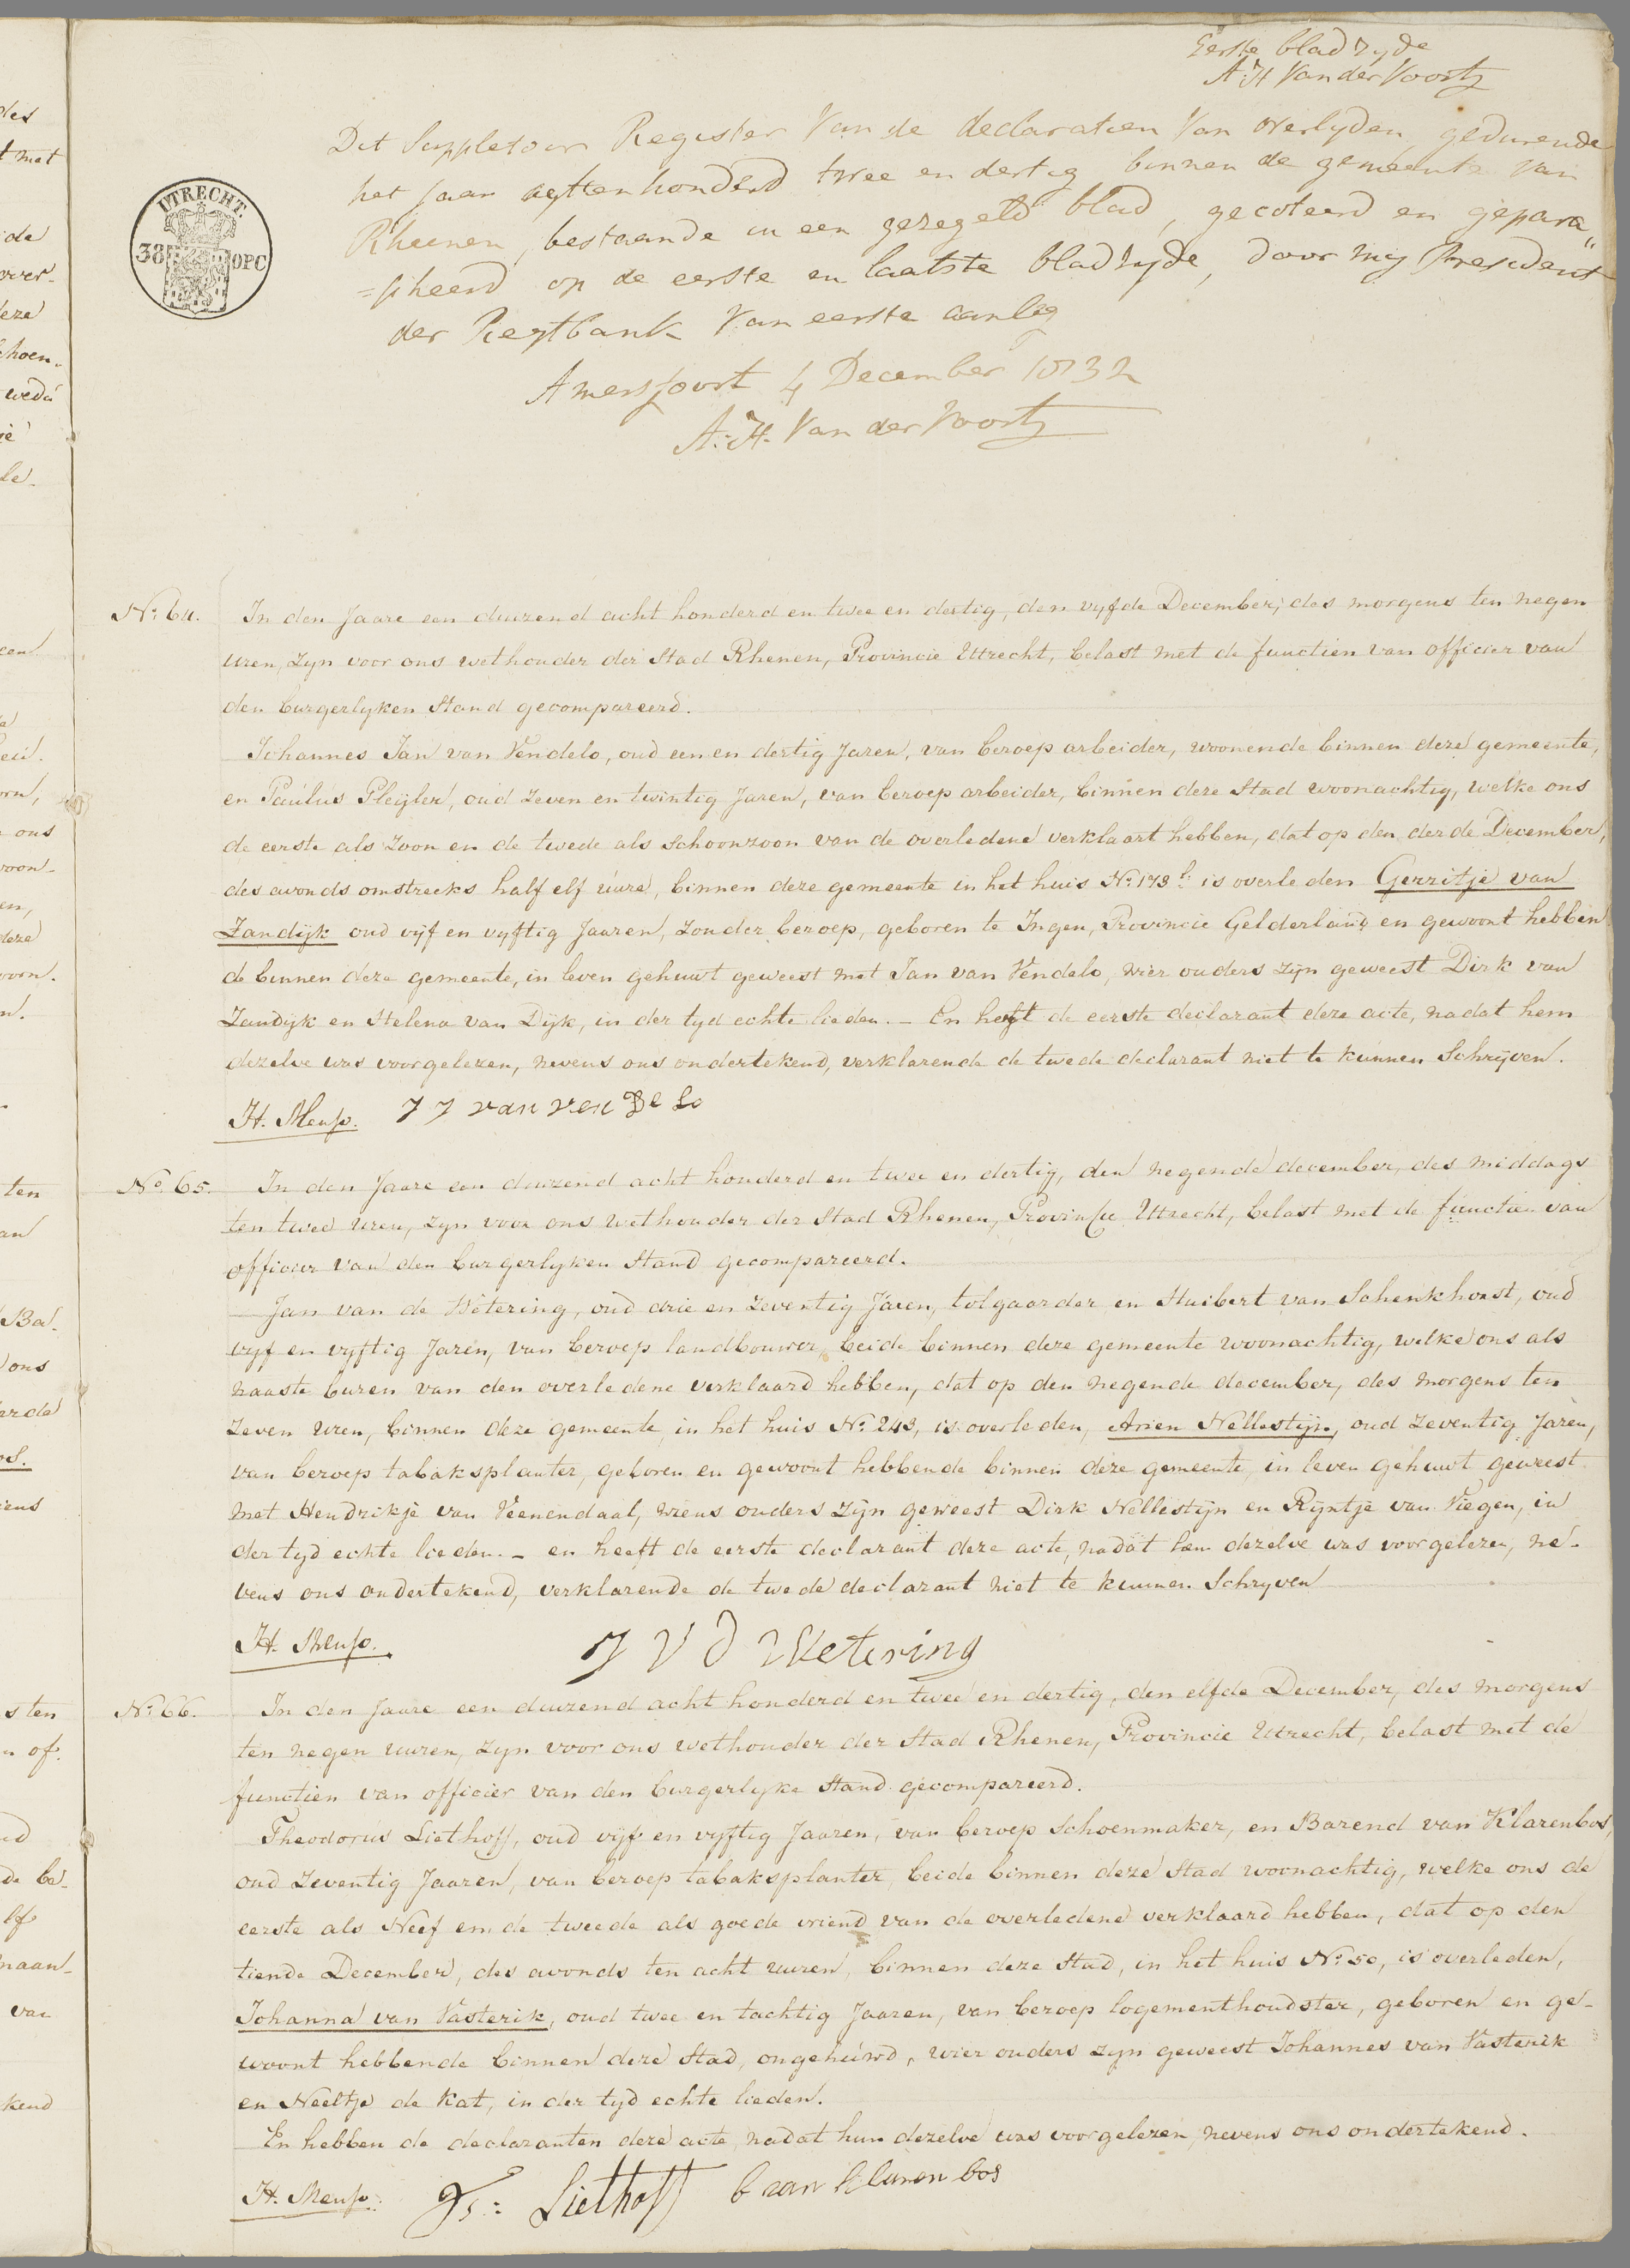 Eerste bladzyde
A:H Van der Voort
Dit Suppletoir Register Van de declaratien Van overlyden gedurende
het Jaar agttenhonderd twee en dertig binnen de gemeente van
Rheenen, bestaande in een gezegeld blad, gecoteerd en gepara"
=pheerd op de eerste en laatste bladzyde, door my President
der Regtbank Van eerste aanleg
Amersfoort 4 December 1832
A:H. Van der Voort
UTRECHT.
38 OPC
No: 64. In den Jaare een duizend acht honderd en twee en dertig, den vyfde December, des morgens ten negen
uren, zyn voor ons wethouder der Stad Rhenen, Provincie Uttrecht, belast met de functien van officier van
den burgerlyken Stand gecompareerd.
Johannes Jan van Vendelo, oud een en dertig Jaren, van beroep arbeider, woonende binnen deze gemeente,
en Paulus Pleijler, oud zeven en twintig Jaren, van beroep arbeider, binnen deze Stad woonachtig, welke ons
de eerste als Zoon en de twede als schoonzoon van de overledene verklaart hebben, dat op den derde December,
des avonds omstreeks half elf uure, binnen deze gemeente in het huis No: 173 b: is overleden Gerritje van
Zandijk oud vijf en vyftig Jaaren, zonder beroep, geboren te Ingen, Provincie Gelderland en gewoont hebben
de binnen deze gemeente, in leven gehuwt geweest met Jan van Vendelo, wier ouders zijn geweest Dirk van
Zandijk en Helena van Dijk, in der tyd echte lieden. _ En heeft de eerste declarant deze acte, nadat hem
dezelve was voorgelezen, nevens ons ondertekend, verklarende de twede declarant niet te kunnen Schrijven.
H. Menso. J J van ven De Lo
No. 65. In den Jaare een duizend acht honderd en twee en dertig, den negende december, des middags
ten twee uren, zyn voor ons wethouder der Stad Rhenen, Provincie Uttrecht, belast met de functien van
officier van den burgerlyken Stand gecompareerd.
Jan van de Wetering, oud drie en zeventig Jaren, tolgaarder en Huibert van Schenkhorst, oud
vyf en vyftig Jaren, van beroep landbouwer, beide binnen deze gemeente woonachtig, welke ons als
naaste buren van den overledene verklaard hebben, dat op den negende december, des morgens ten
zeven uren, binnen deze gemeente, in het huis No: 243, is overleden, Arien Nellestijn, oud zeventig Jaren,
van beroep tabaksplanter, geboren en gewoont hebbende binnen deze gemeente, in leven gehuwt geweest
met Hendrikje van Veenendaal, wiens ouders zijn geweest Dirk Nellestijn en Rijntje van Viegen, in
der tyd echte lieden. _ en heeft de eerste declarant deze acte, nadat hem dezelve was voorgelezen, ne-
vens ons ondertekend, verklarende de twede declarant niet te kunnen Schryven
H. Menso. J V D Wetering
No: 66. In den Jaare een duizend acht honderd en twee en dertig, den elfde December, des morgens
ten negen uuren, zyn voor ons wethouder der Stad Rhenen, Provincie Utrecht, belast met de
functien van officier van den burgerlyke Stand gecompareerd.
Theodorus Liethoff, oud vijf en vyftig Jaaren, van beroep Schoenmaker, en Barend van Klarenbos,
oud Zeventig Jaaren, van beroep tabaksplanter, beide binnen deze Stad woonachtig, welke ons de
eerste als Neef en de tweede als goede vriend van de overledene verklaard hebben, dat op den
tiende December, des avonds ten acht uuren, binnen deze Stad, in het huis No: 50, is overleden,
Johanna van Vasterik, oud twee en tachtig Jaaren, van beroep logementhoudster, geboren en ge-
woont hebbende binnen deze Stad, ongehuwd, wier ouders zyn geweest Johannes van Vasterik
en Neeltje de Kat, in der tyd echte lieden.
En hebben de declaranten deze acte, nadat hun dezelve was voorgelezen, nevens ons ondertekend.
H. Menso. Ts: Liethoff b van klarenbos